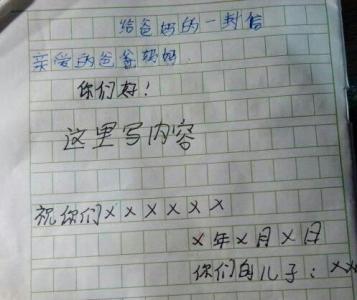 给爸妈的一封信
亲爱的爸爸妈妈
你们好！
这里写内容
祝你们××××××
×年×月×日
你们的儿子：××